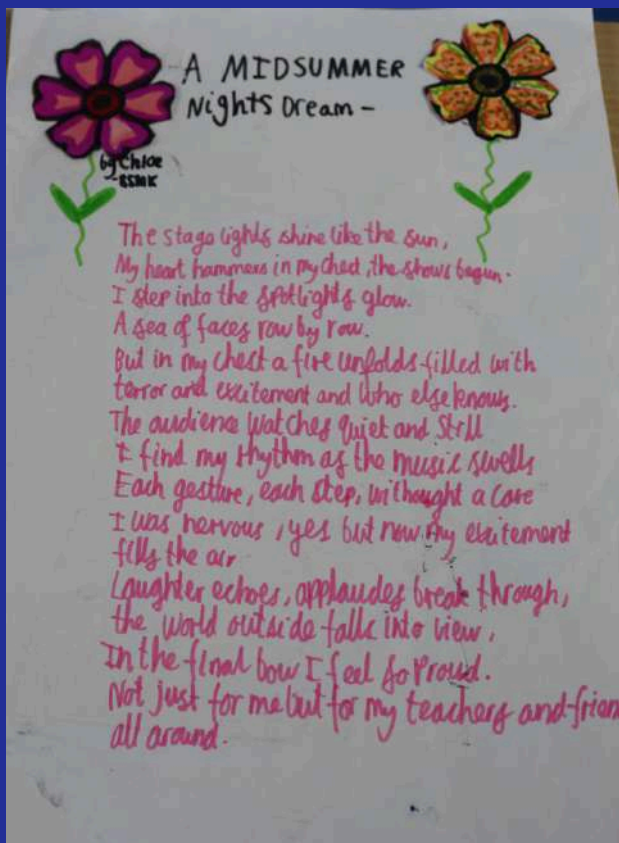 - A MIDSUMMER
Nights Dream -
by Chloe
The stage lights shine like the sun,
My heart hammers in my chest, the shows begun.
I step into the spotlights glow.
A sea of faces row by row.
But in my chest a fire unfolds filled with
terror and excitement and who else knows.
The audience watches quiet and still
I find my rhythm as the music swells
Each gesture, each step, withought a care
I was nervous, yes but now my excitement
fills the air
Laughter echoes, applaudes break through,
the world outside falls into view,
In the final bow I feel so proud.
Not just for me but for my teachers and frien
all around.